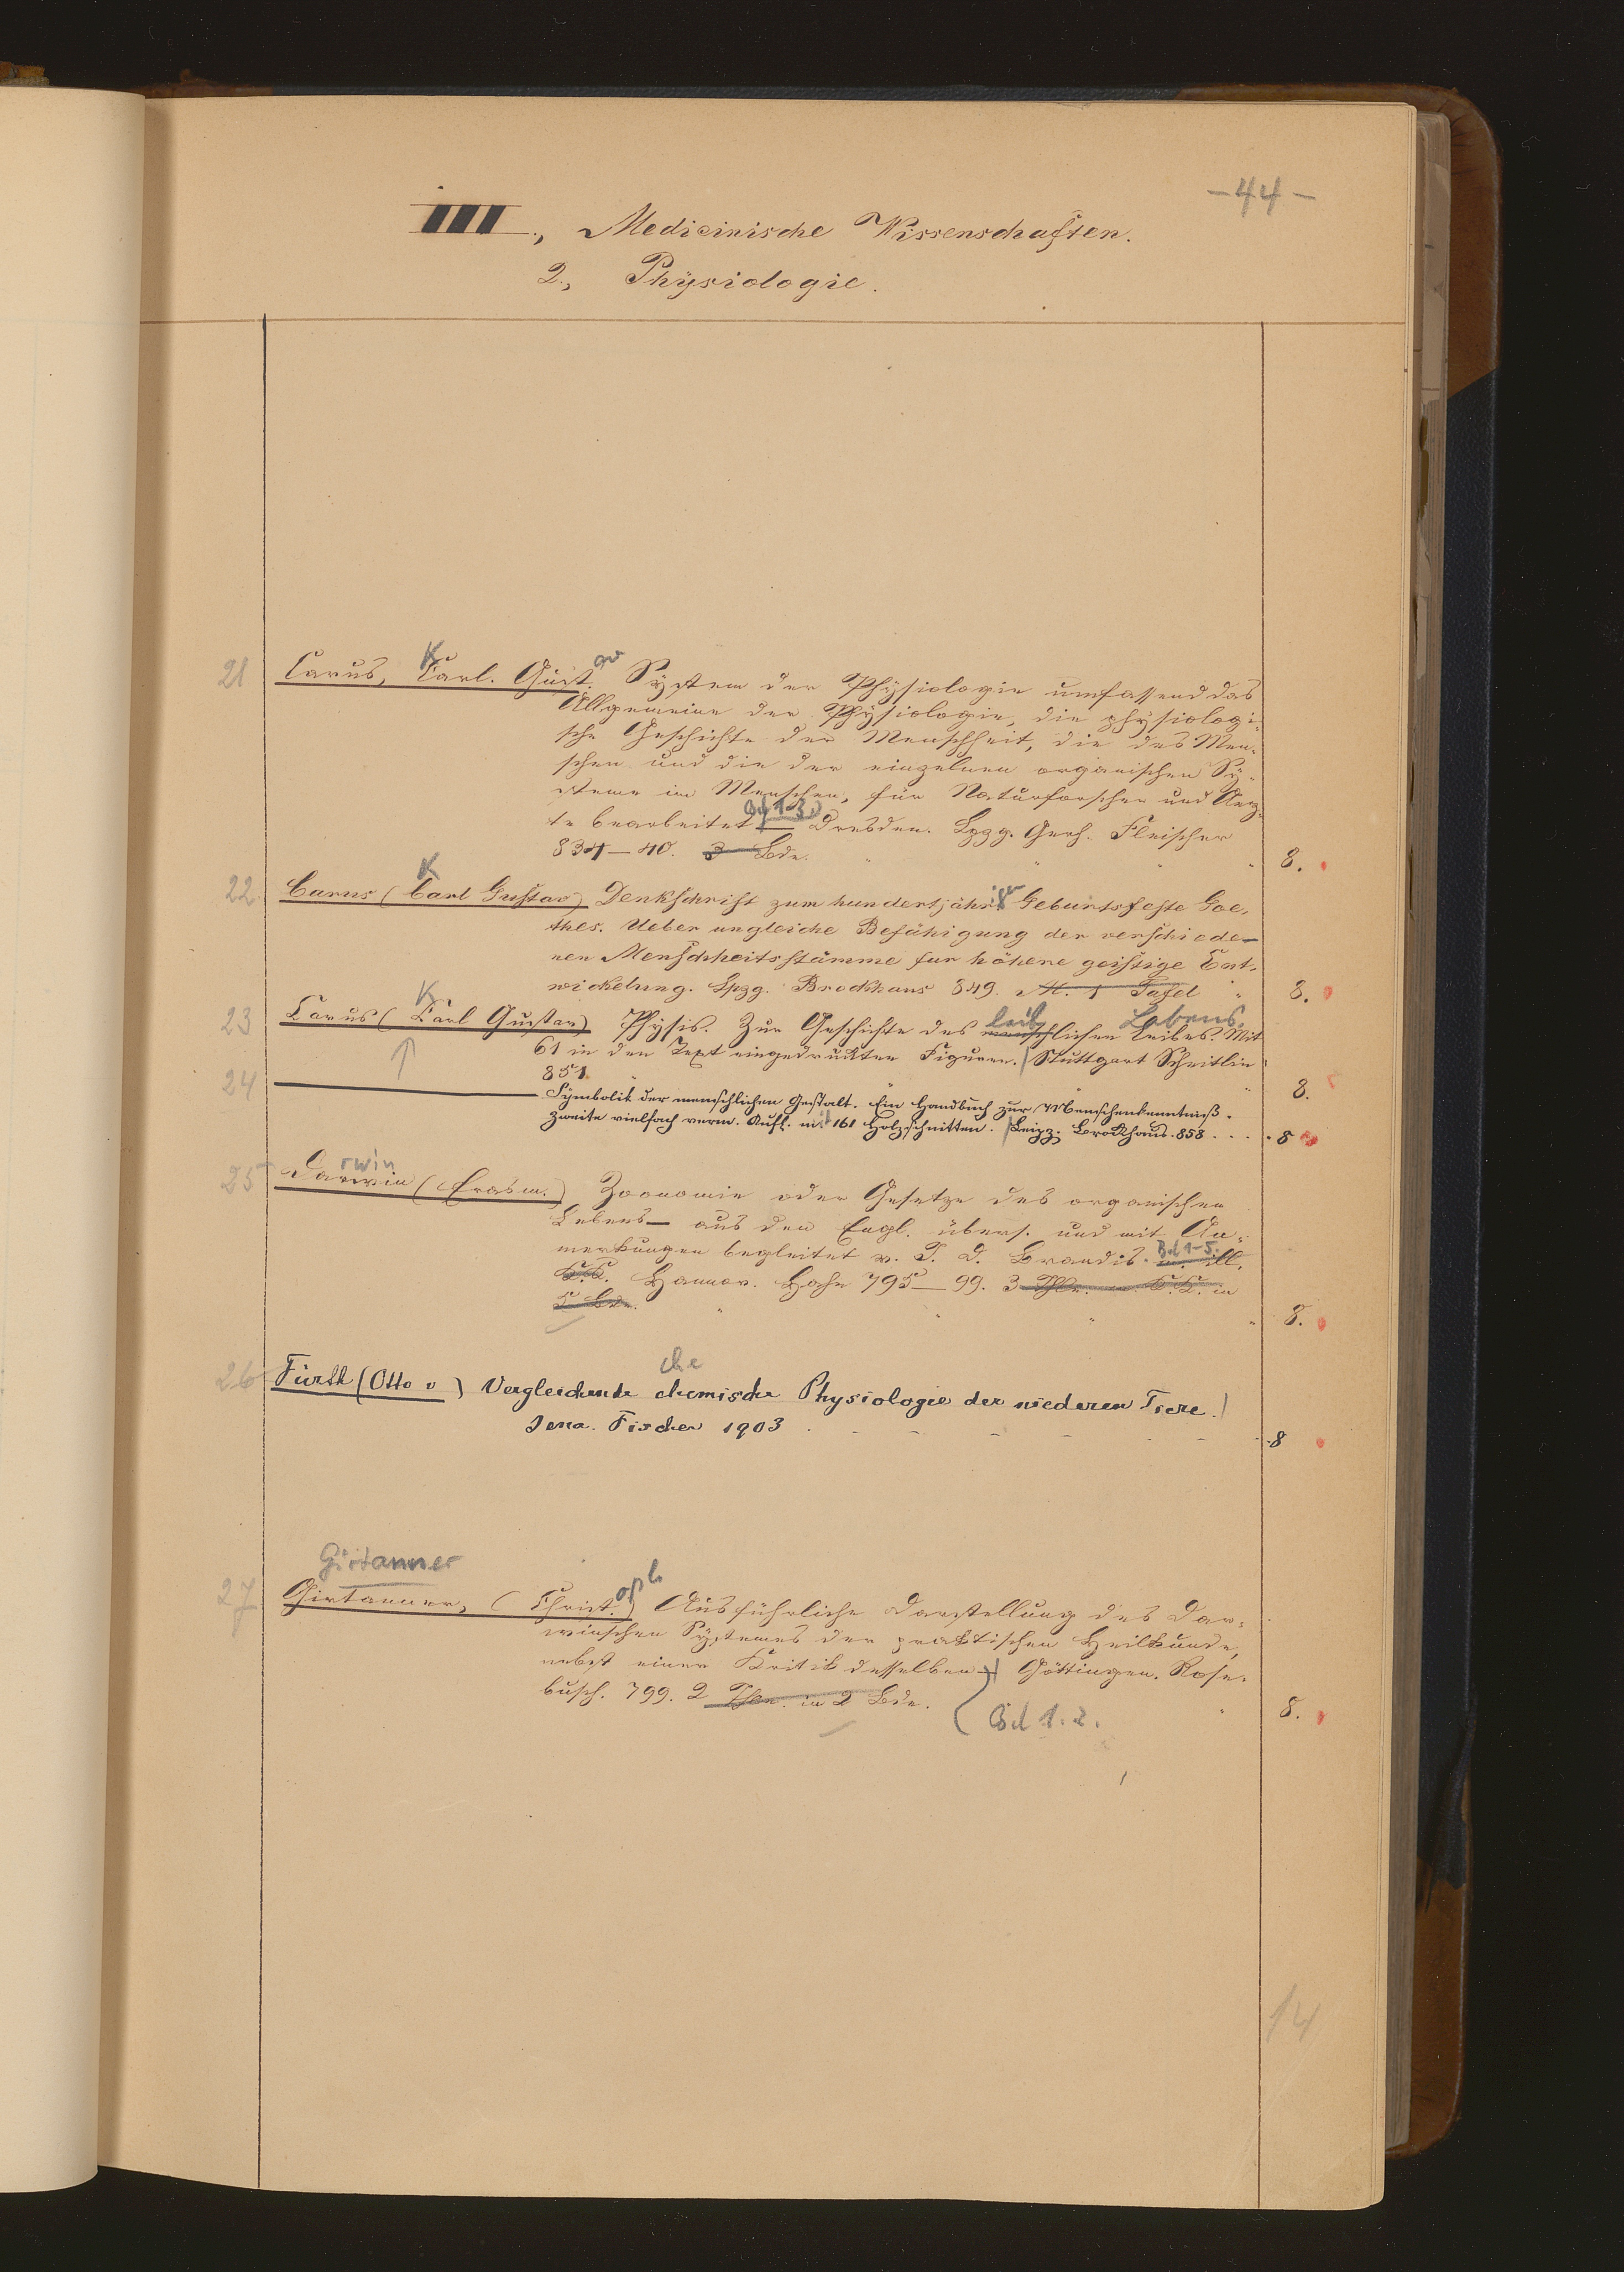 -44-
III., Medicinische Wissenschaften.
2., Physiologie.
21 Carus, Carl. Gust. System der Physiologie umfassend das
K av
Allgemeine der Physiologie, die physiologi-
sche Geschichte der Menschheit, die des Men-
schen und die der einzelnen organischen Sy-
steme im Menschen, für Naturforscher und Aerz-
te bearbeitet Dresden. Lpzg. Gerh. Fleischer
Bd 1-3
834-40. 3 Bde. 8.
22 Carus (Carl Gustav) Denkschrift zum hundertjähr. Geburtsfeste Goe-
K
thes. Ueber ungleiche Befähigung der verschiede-
nen Menschheitsstämme fur höhere geistige Ent-
wickelung. Lpzg. Brockhaus 849. M. 1 Tafel 8.
23 Carus (Carl Gustav) Physis. Zur Geschichte des menschlichen Leibes. Mit
K leib Lebens.
61 in den Text eingedruckten Figuren. Stuttgart Scheitlin
851. 8.
24 Symbolik der menschlichen Gestalt. Ein Handbuch zur Menschenkenntniß.
zweite vielfach verm. Aufl. mit 161 Holzschnitten. Leipz. Brockhaus. 858 . . . . 8
25 Darwin (Erasm.) Zoonomie oder Gesetze des organischen
rwin
Lebens — aus den Engl. übers. und mit An-
merkungen begleitet v. J. D. Brandis. m. ill.
Bd 1-5.
K.K. Hannov. Hahn 795-99. 3 Thle. m. K.K. in
5 Bde. 8.
26 Fürth (Otto v) Vergleichende chemische Physiologie der niederen Tiere.
che
Jena. Fischer 1903 8
Girtanner
27 Girtanner, (Christ.) Ausführliche Darstellung des Dar-
oph
winschen Systemes der praktischen Heilkunde,
nebst einer Kritik desselben. Göttingen. Rosen-
busch. 799. 2 Thle. in 2 Bde. 8.
Bd 1.2.
14